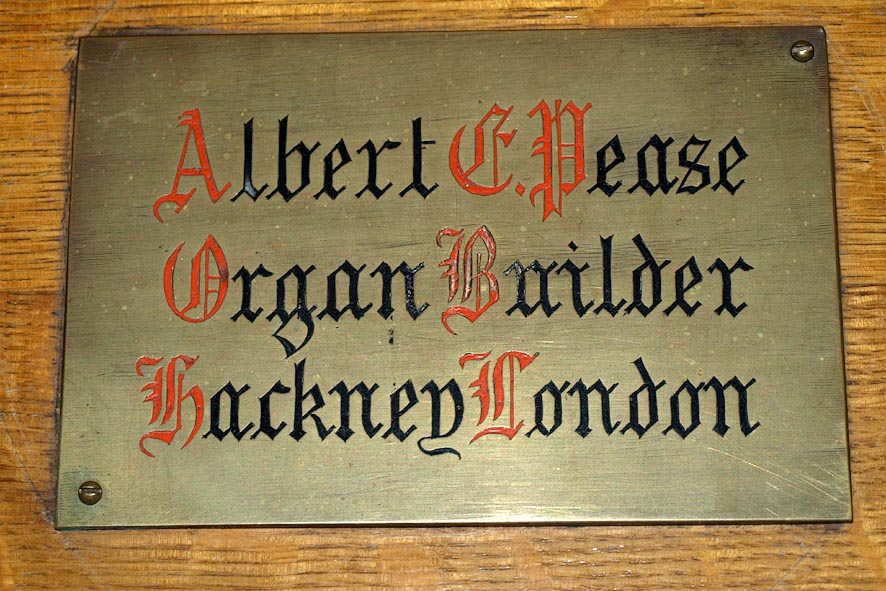 Albert E. Pease
Organ Builder
Hackney London